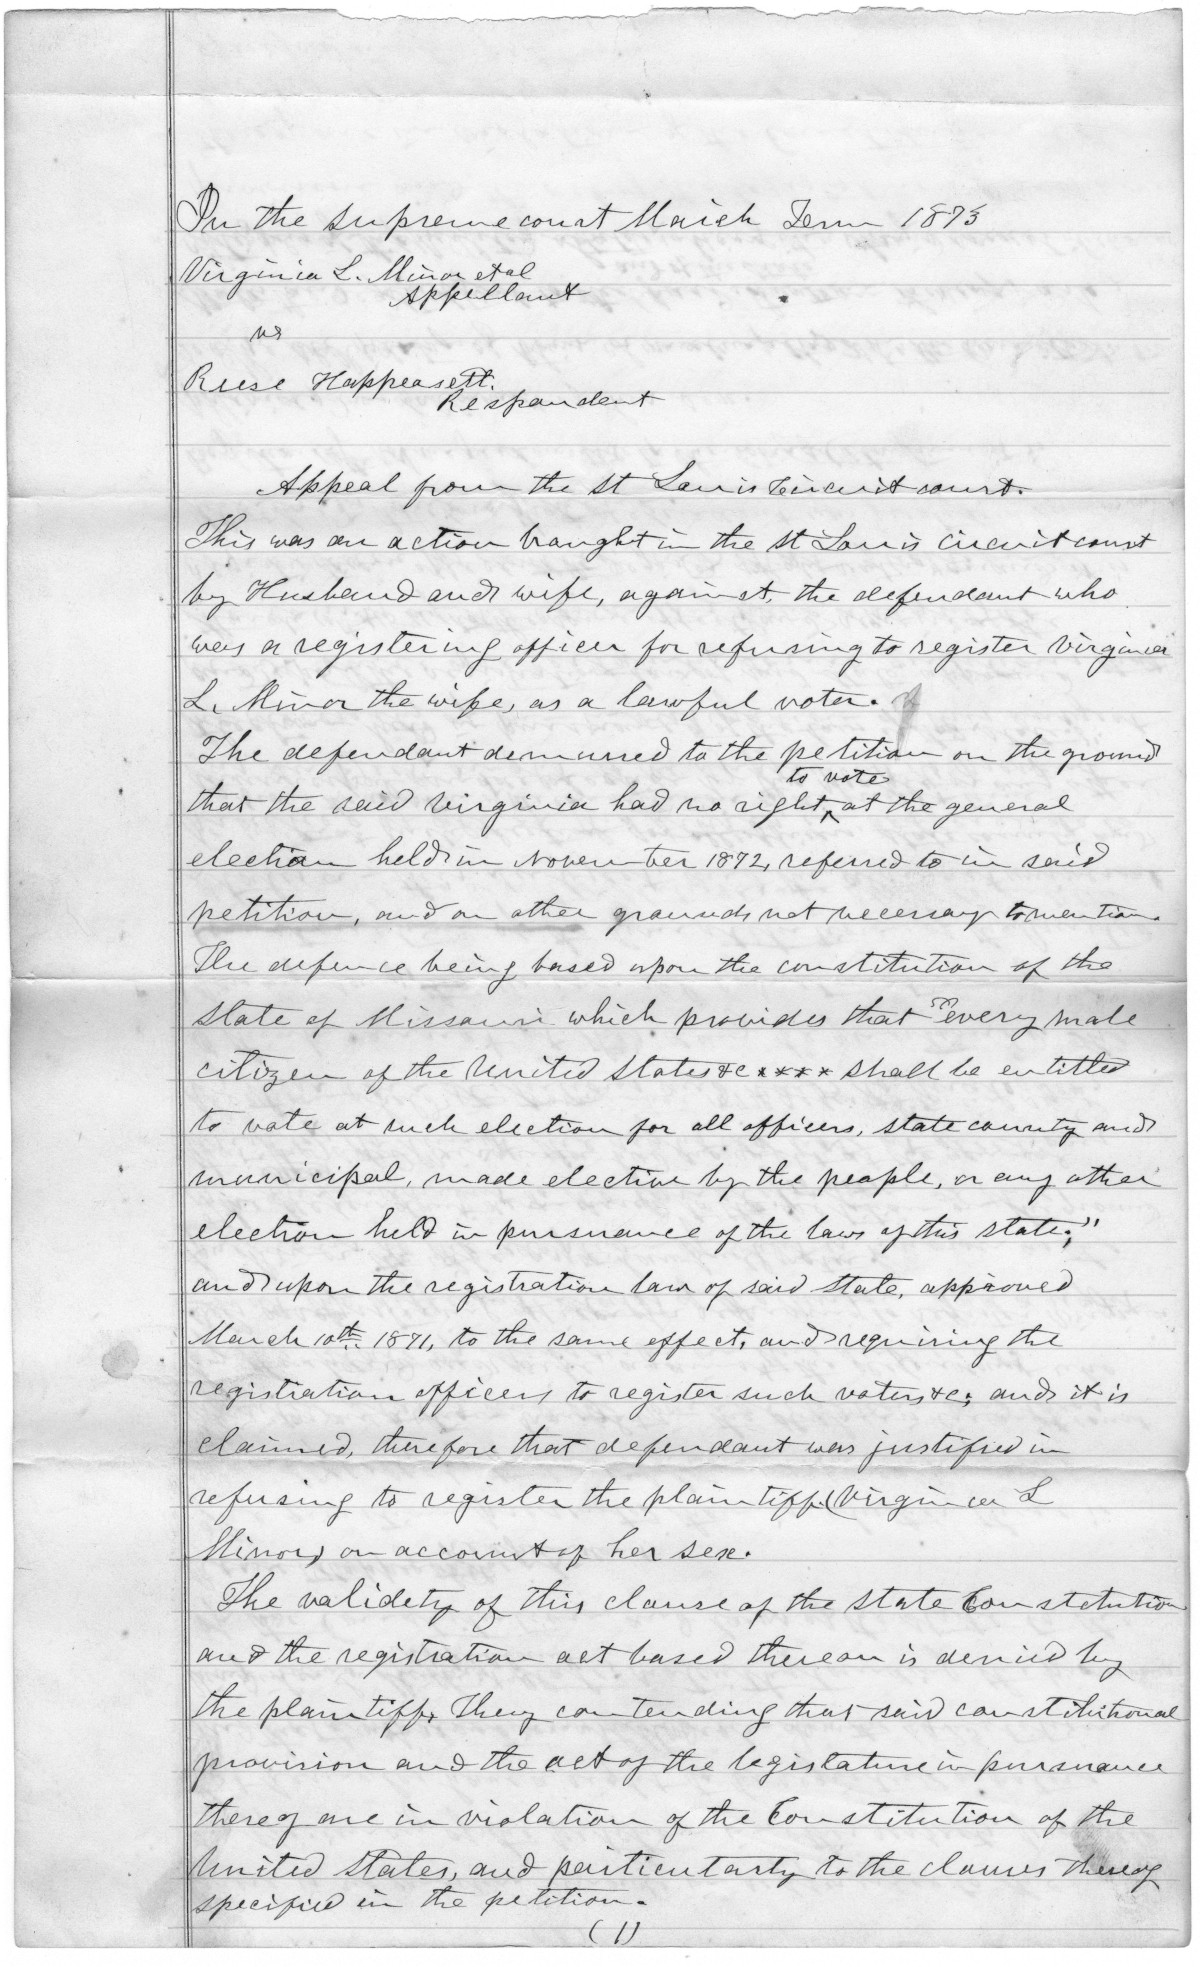 In the supreme court March Term 1873
Virginia L. Minor et al
Appellant
vs
Reese Happersett.
Respondent
Appeal from the St Louis circuit court.
This was an action brought in the St Louis circuit court
by Husband and wife, against, the defendant who
was a registering officer for refusing to register Virginia
L. Minor the wife, as a lawful voter.
The defendant demurred to the petition on the ground
to vote
that the said Virginia had no right ^ at the general
election held in November 1872, referred to in said
petition, and on other grounds not necessary to mention.
The defence being based upon the constitution of the
state of Missouri which provides that "every male
citizen of the United States &c **** shall be entitled
to vote at such election for all officers, state county and
municipal, made elective by the people, or any other
election held in pursuance of the laws of this state;"
and upon the registration law of said State, approved
March 10th 1871, to the same effect, and requiring the
registration officers to register such voters &c; and it is
claimed, therefore that defendant was justified in
refusing to register the plaintiff (Virginia L
Minor) on account of her sex.
The validety of this clause of the State Constitution
and the registration act based thereon is denied by
the plaintiff, They contending that said constitutional
provision and the act of the legislature in pursuance
thereof are in violation of the Constitution of the
United States, and particularly to the clauses thereof
specified in the petition.
(1)